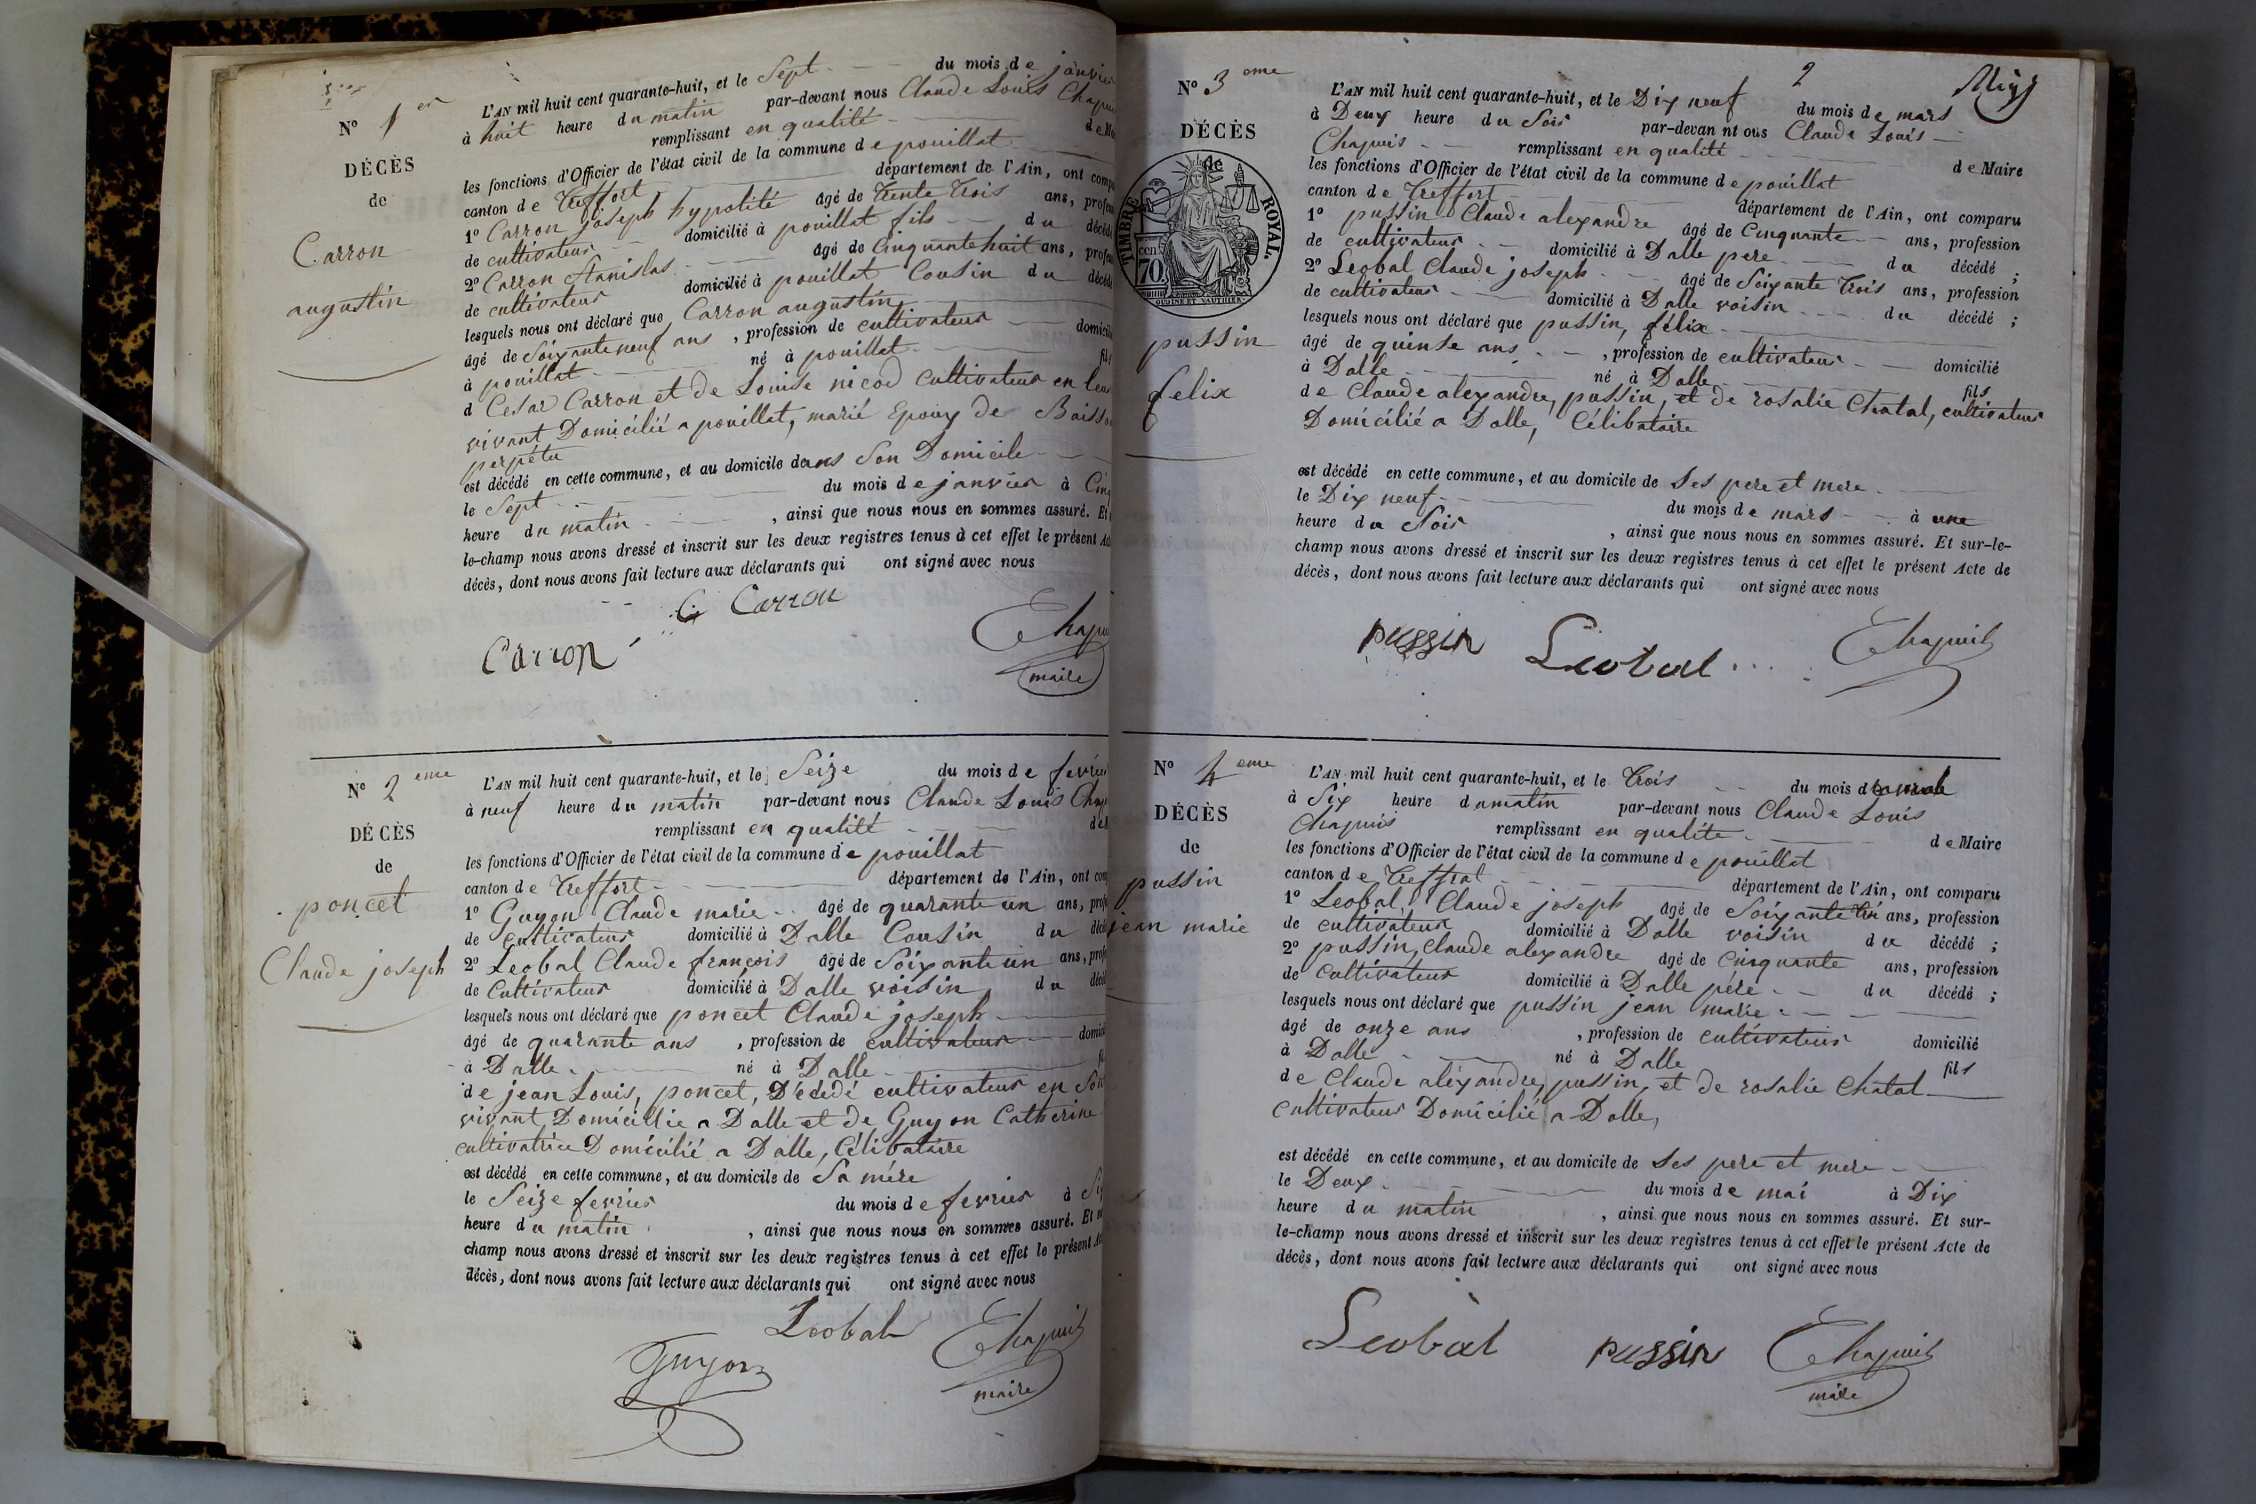 N° 1er
DÉCÈS
de
Carron
augustin
L'AN mil huit cent quarante-huit, et le Sept du mois de janvier
à huit heure du matin par-devant nous Claude Louis
remplissant en qualité
les fonctions d'Officier de l'état civil de la commune de pouillat
canton de Treffort département de l'Ain, ont
1° Carron joseph hypolité âgé de trente trois ans,
de cultivateur domicilié à pouillat fils du
2° Carron Stanislas âgé de Cinquante huit ans,
de cultivateur domicilié à pouillat Cousin du
lesquels nous ont déclaré que Carron augustin
âgé de Soixante neuf ans, profession de cultivateur
à pouillat né à pouillat fils
d Cesar Carron et de Louise nicod Cultivateur en leur
vivant Domicilié a pouillat, marié Epoux de
perpétu
est décédé en cette commune, et au domicile dans Son Domicile
le Sept du mois de janvier à
heure du matin, ainsi que nous nous en sommes assuré. Et
le-champ nous avons dressé et inscrit sur les deux registres tenus à cet effet le présent
décès, dont nous avons fait lecture aux déclarants qui ont signé avec nous
C Carron
Carron
maire
N° 2eme
DÉCÈS
de
poncet
Claude joseph
L'AN mil huit cent quarante-huit, et le Seize du mois de
à neuf heure du matin par-devant nous Claude Louis
remplissant en qualité
les fonctions d'Officier de l'état civil de la commune de pouillat
canton de Treffort département de l'Ain, ont
1° Guyon Claude marie âgé de quarante un ans,
de cultivateur domicilié à Dalle Cousin du
2° Leobal Claude françois âgé de Soixante un ans,
de Cultivateur domicilié à Dalle voisin du
lesquels nous ont déclaré que poncet Claude joseph
âgé de quarante ans, profession de cultivateur
à Dalle né à Dalle
de jean Louis, poncet, Décédé cultivateur en Son
vivant Domicillie a Dalle et de Guyon Catherine
cultivatrice Domicilié a Dalle, Célibataire
est décédé en cette commune, et au domicile de Sa mére
le Seize fevrier du mois de fevrier à
heure du matin, ainsi que nous nous en sommes assuré. Et
champ nous avons dressé et inscrit sur les deux registres tenus à cet effet le présent
décès, dont nous avons fait lecture aux déclarants qui ont signé avec nous
Leobal
Guyon
Chapuis
maire
2
N° 3eme
DÉCÈS
de
TIMBRE ROYAL.
70 cen
pussin
felix
L'AN mil huit cent quarante-huit, et le Dix neuf du mois de mars
à Deux heure du Soir par-devan nt ous Claude Louis
Chapuis remplissant en qualité de Maire
les fonctions d'Officier de l'état civil de la commune de pouillat
canton de Treffort département de l'Ain, ont comparu
1° pussin Claude alexandre âgé de Cinquante ans, profession
de cultivateur domicilié à Dalle pere du décédé ;
2° Leobal Claude joseph âgé de Soixante trois ans, profession
de cultivateur domicilié à Dalle voisin du décédé ;
lesquels nous ont déclaré que pussin, félix
âgé de quinse ans, profession de cultivateur domicilié
à Dalle né à Dalle fils
de Claude alexandre, pussin, et de rosalie Chatal, cultivateur
Domicilié a Dalle, Célibataire
est décédé en cette commune, et au domicile de Ses pere et mere
le Dix neuf du mois de mars à une
heure du Soir, ainsi que nous nous en sommes assuré. Et sur-le-
champ nous avons dressé et inscrit sur les deux registres tenus à cet effet le présent Acte de
décès, dont nous avons fait lecture aux déclarants qui ont signé avec nous
pussin Leobal Chapuis
N° 4eme
DÉCÈS
de
pussin
jean marie
L'AN mil huit cent quarante-huit, et le Trois du mois de
à Six heure du matin par-devant nous Claude Louis
Chapuis remplissant en qualite de Maire
les fonctions d'Officier de l'état civil de la commune de pouillat
canton de Treffort département de l'Ain, ont comparu
1° Leobal, Claude joseph âgé de Soixante trois ans, profession
de cultivateur domicilié à Dalle voisin du décédé ;
2° pussin, Claude alexandre âgé de Cinquante ans, profession
de Cultivateur domicilié à Dalle pére du décédé ;
lesquels nous ont déclaré que pussin jean marie
âgé de onze ans, profession de cultivateur domicilié
à Dalle né à Dalle fils
de Claude aléxandre, pussin, et de rosalie Chatal
cultivateur Domicilié a Dalle,
est décédé en cette commune, et au domicile de Ses pere et mere
le Deux du mois de mai à Dix
heure du matin, ainsi que nous nous en sommes assuré. Et sur-
le-champ nous avons dressé et inscrit sur les deux registres tenus à cet effet le présent Acte de
décès, dont nous avons fait lecture aux déclarants qui ont signé avec nous
Leobal pussin Chapuis
maire